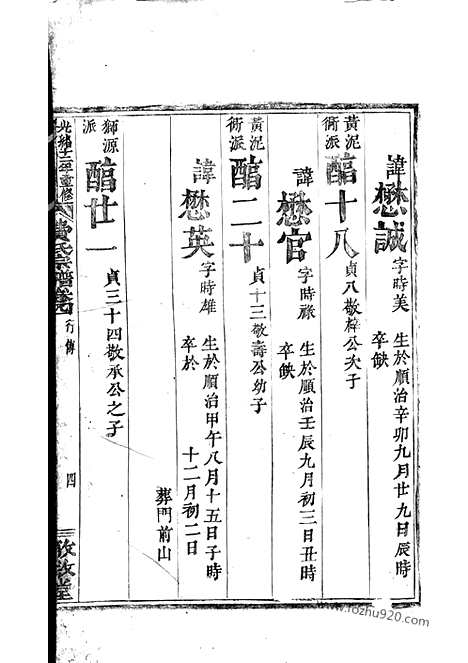 諱懋誠字時美 生於順治辛卯九月廿九日辰時
卒缺
黃泥衕派 醕十八 貞八敬梓公次子
諱懋官字時祿 生於順治壬辰九月初三日丑時
卒缺
黃泥衕派 醕二十 貞十三敬壽公幼子
諱懋英字時雄 生於順治甲午八月十五日子時
卒於 十二月初二日
葬門前山
獅源派 醕廿一 貞三十四敬承公之子
光緒十二年重修 費氏宗譜 行傳 四 敘堂
www.fozhu920.com